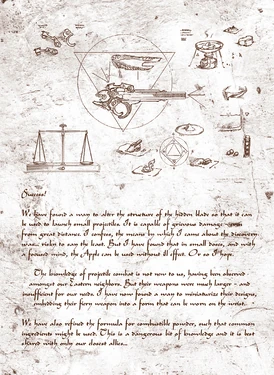 Success!
We have found a way to alter the structure of the hidden blade so that it can
be used to launch small projectiles. It is capable of grievous damage
from great distance. I confess, the means by which I came about the discovery
was... risky to say the least. But I have found that in small doses, and with
a focused mind, the Apple can be used without ill effect. Or so I hope.
The knowledge of projectile combat is not new to us, having been observed
amongst our Eastern neighbors. But their weapons were much larger - and
insufficient for our needs. I have now found a way to miniaturize their designs,
embedding their fiery weapon into a form that can be worn on the wrist.
We have also refined the formula for combustible powder, such that common
ingredients might be used. This is a dangerous bit of knowledge and it is best
shared with only our closest allies...